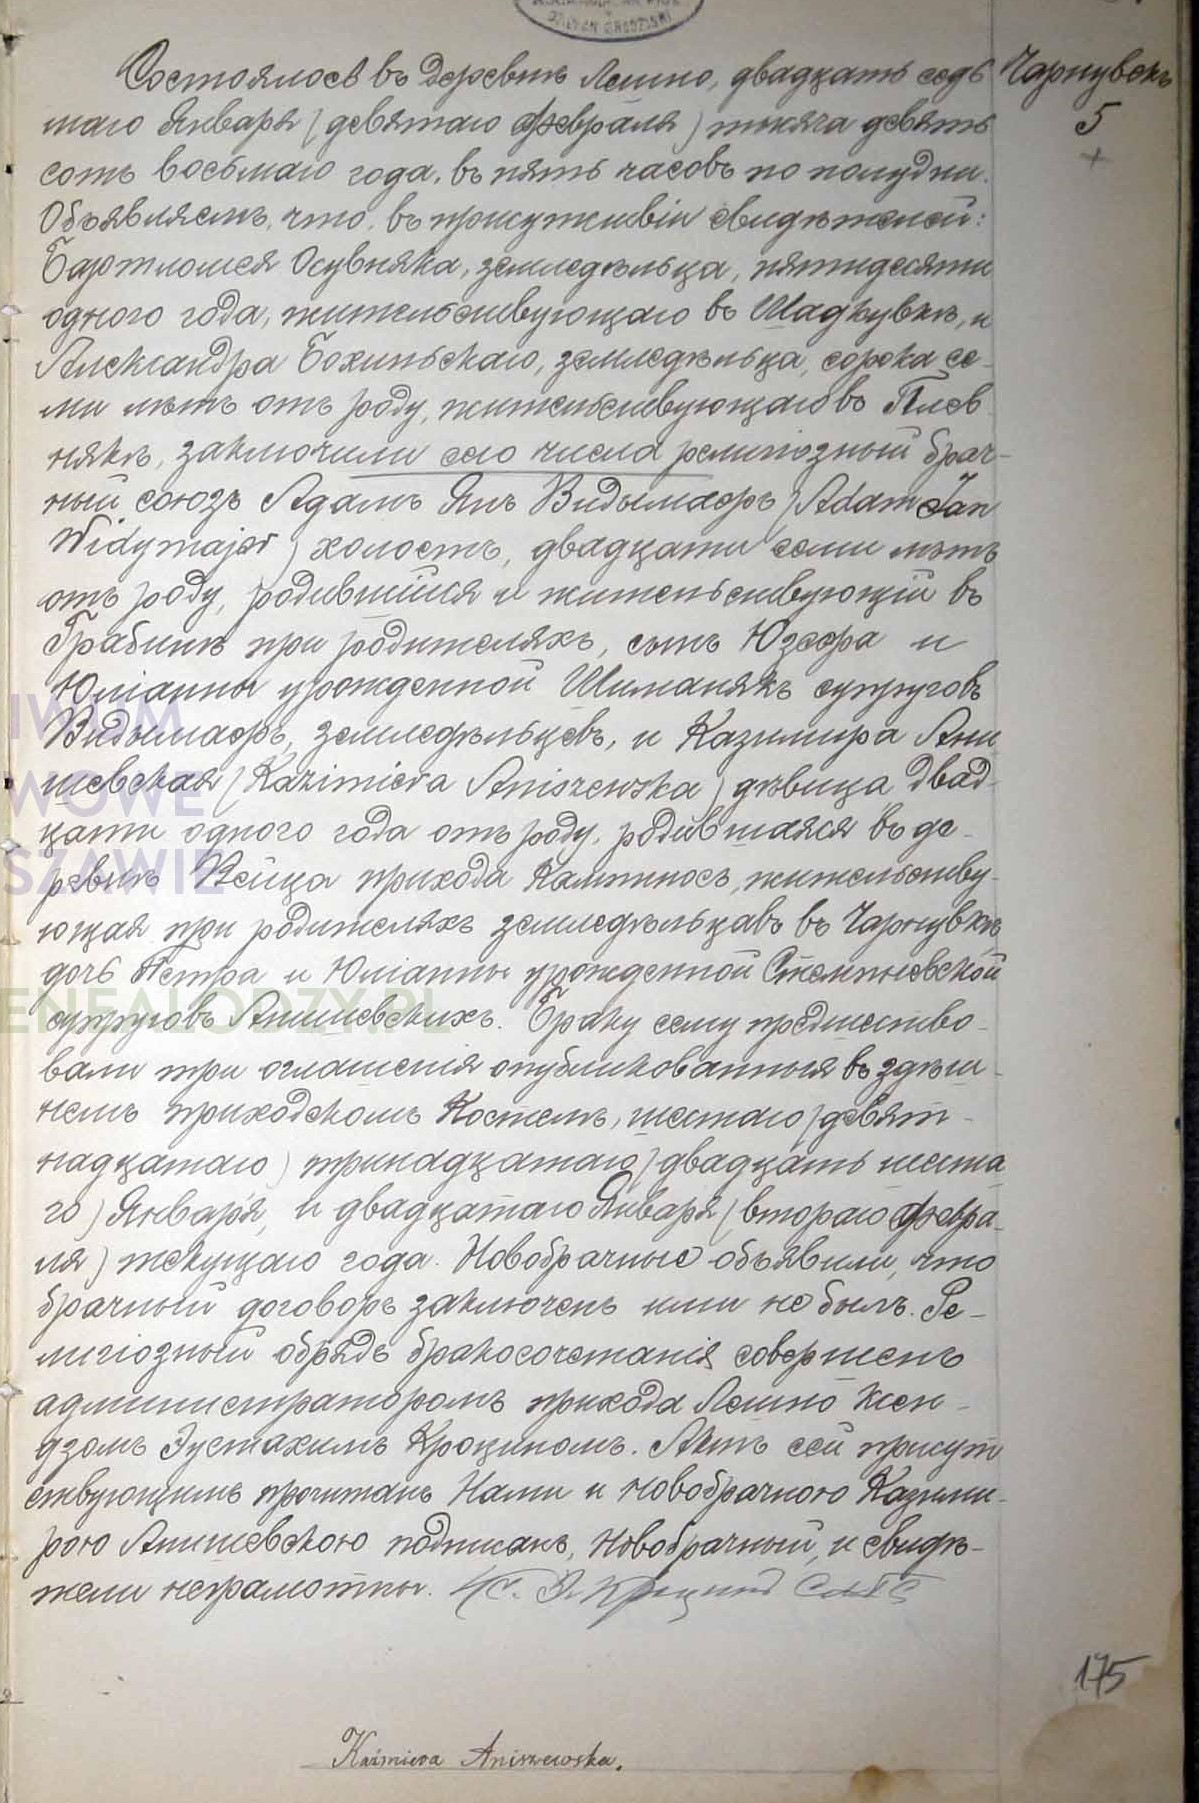 Чарнувекъ
5
Состоялось въ деревнѣ Лешно, двадцать седь
маго Января (девятаго Февраля) тысяча девять
сотъ восьмаго года, въ пять часовъ по полудни.
Объявляемъ, что, въ присутствіи свидѣтелей:
Бартломея Осувняка, земледѣльца, пятидесяти
одного года, жительствующаго въ Шадкувкѣ, и
Александра Бохиньскаго, земледѣльца, сорока се-
ми лѣтъ отъ роду, жительствующаго въ Плев
някѣ, заключили сего числа религіозный брач-
ный союзъ Адамъ Янъ Видымаеръ (Adam Jan
Widymajer) холостъ, двадцати семи лѣтъ
отъ роду, родившійся и жительствующій въ
Грабинѣ при родителяхъ, сынъ Юзефа и
Юліанны урожденной Шиманякъ супруговъ
Видымаеръ, земледѣльцевъ, и Казимира Ани
шевская (Kazimiera Aniszewska) дѣвица двад-
цати одного года отъ роду, родившаяся въ де-
ревнѣ Вейца прихода Кампиносъ, жительству-
ющая при родителяхъ земледѣльцавъ въ Чарнувкѣ
дочь Петра и Юліанны урожденной Стемпневской
супруговъ Анишевскихъ. Браку сему предшество-
вали три оглашенія опубликованныя въ здѣш-
немъ приходскомъ Костелѣ, шестаго (девят-
надцатаго) тринадцатаго (двадцать шеста
го) Января, и двадцатаго Января (втораго Февра-
ля) текущаго года. Новобрачные объявили, что
брачный договоръ заключенъ ими не былъ. Ре-
лигіозный обрядъ бракосочетанія совершенъ
администраторомъ прихода Лешно Ксен-
дзомъ Эустахимъ Кроциномъ. Актъ сей присут
ствующимъ прочитанъ Нами и новобрачною Казими-
рою Анишевскою подписанъ, новобрачный, и свидѣ-
тели неграмотны. Кс. Э. Кроцинъ
175
Kazimiera Aniszewska.